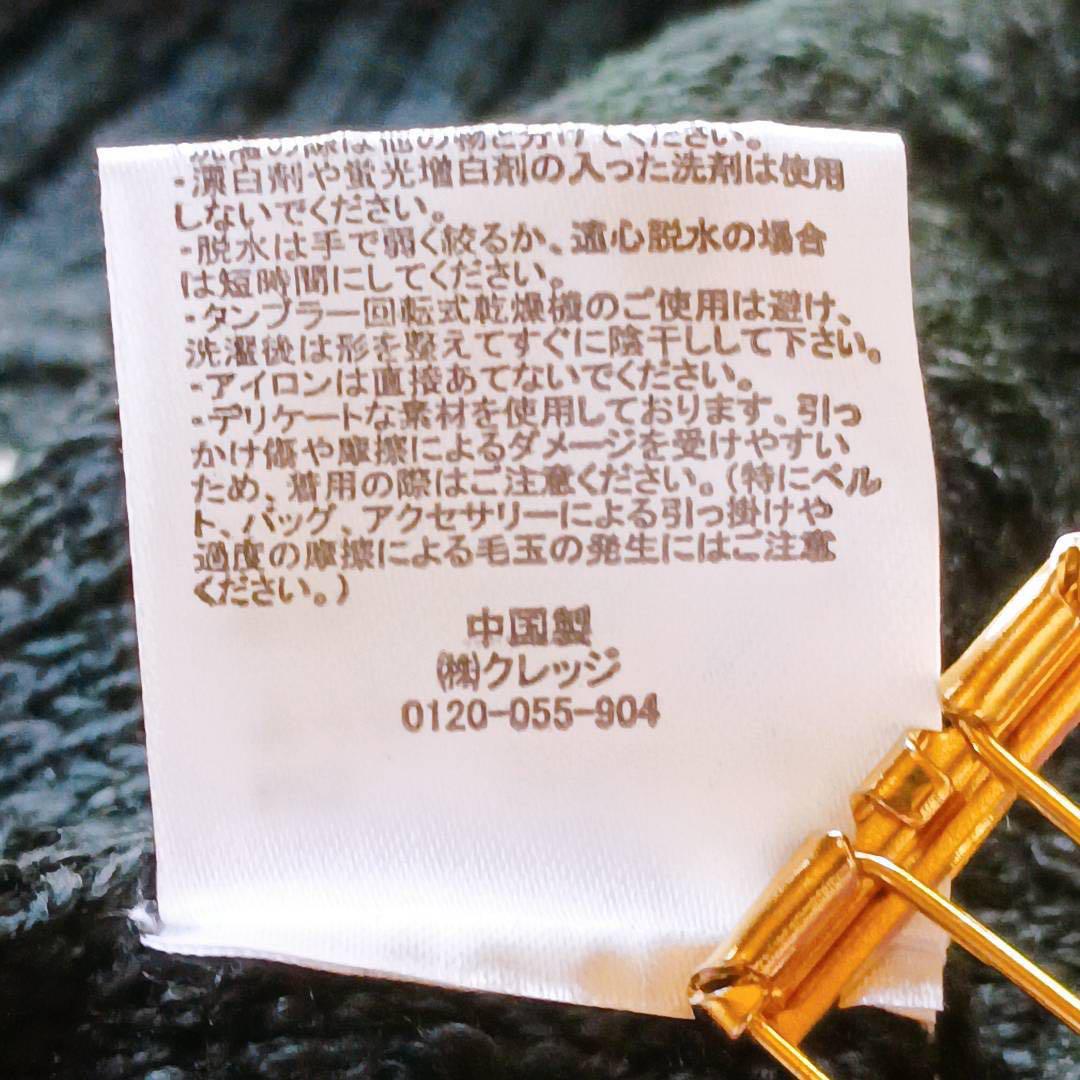 洗濯の際は他の物と分けてください。
・漂白剤や蛍光増白剤の入った洗剤は使用
しないでください。
・脱水は手で弱く絞るか、遠心脱水の場合
は短時間にしてください。
・タンブラー回転式乾燥機のご使用は避け、
洗濯後は形を整えてすぐに陰干しして下さい。
・アイロンは直接あてないでください。
・デリケートな素材を使用しております、引っ
かけ傷や摩擦によるダメージを受けやすい
ため、着用の際はご注意ください。（特にベル
ト、バッグ、アクセサリーによる引っ掛けや
過度の摩擦による毛玉の発生にはご注意
ください。）
中国製
㈱クレッジ
0120-055-904